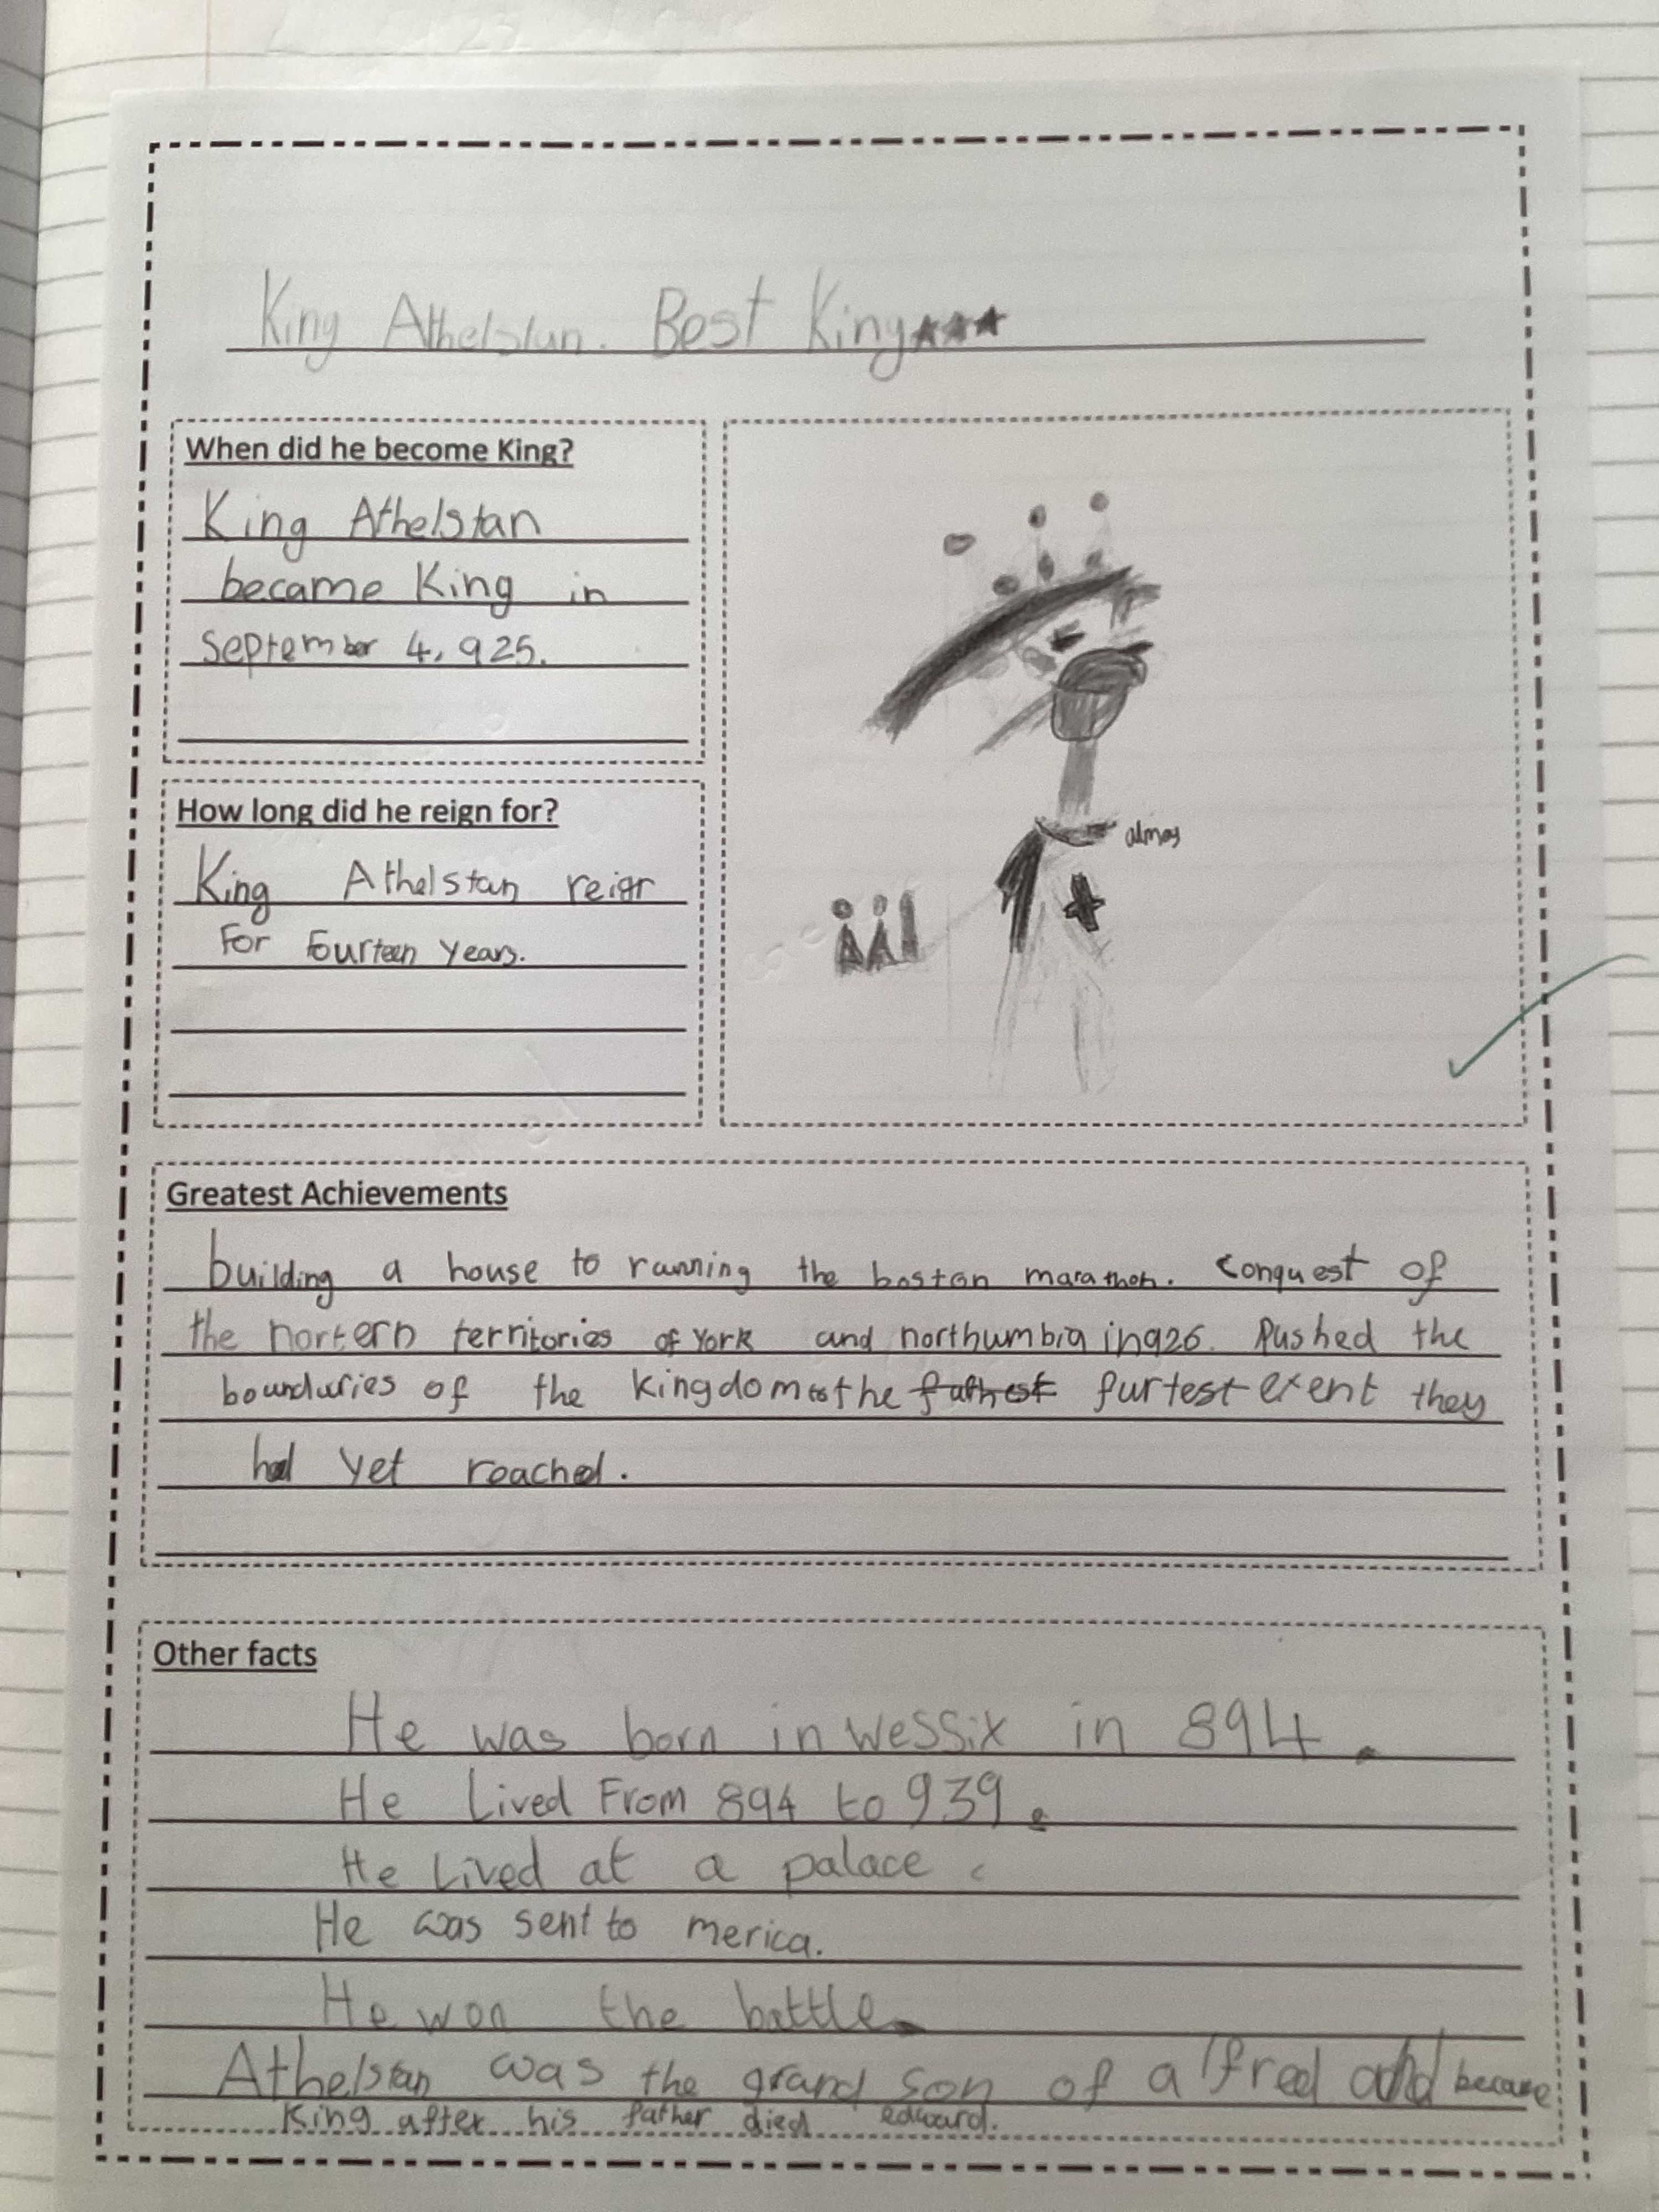 King Athelstun. Best King★★★
When did he become King?
King Athelstan
became King in
September 4, 925.
How long did he reign for?
King Athelstan reigr
For Fourteen years.
Greatest Achievements
building a house to running the boston marathon. Conquest of
the nortern territories of York and northumbia in926. Pushed the
bounduries of the kingdom to the furtest extent they
had yet reached.
Other facts
He was born in Wessix in 894.
He Lived From 894 to 939.
He Lived at a palace.
He was sent to merica.
He won the battle.
Athelstan was the grand son of alfred and became
King after his father died edward.